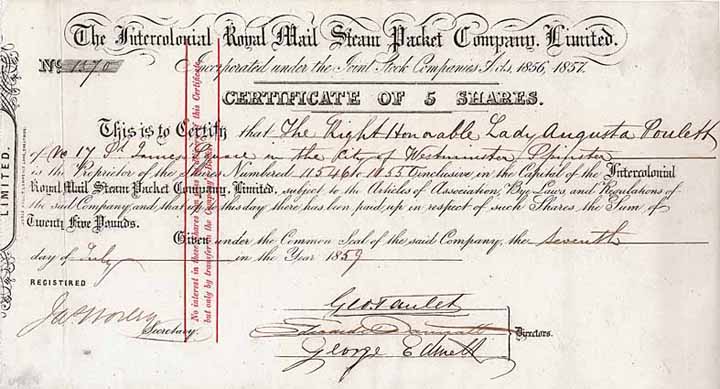 The Intercolonial Royal Mail Steam Packet Company, Limited.
No. 1370
Incorporated under the Joint Stock Companies Acts, 1856, 1857.
CERTIFICATE OF 5 SHARES.
This is to Certify that The Right Honorable Lady Augusta Poulett
of No 17 St James Square in the City of Westminster Spinster
is the Proprietor of the Shares Numbered 11546 to 11550 inclusive in the Capital of the Intercolonial
Royal Mail Steam Packet Company, Limited, subject to the Articles of Association, Bye Laws and Regulations of
the said Company, and that up to this day there has been paid up in respect of such Shares, the Sum of
Twenty Five Pounds.
Given under the Common Seal of the said Company, the seventh
day of July in the Year 1859
REGISTERED
Secretary.
Geo. Paulet
George
Directors.
No interest in these Shares of this Certificate
but only by transfer in the Company
LIMITED.